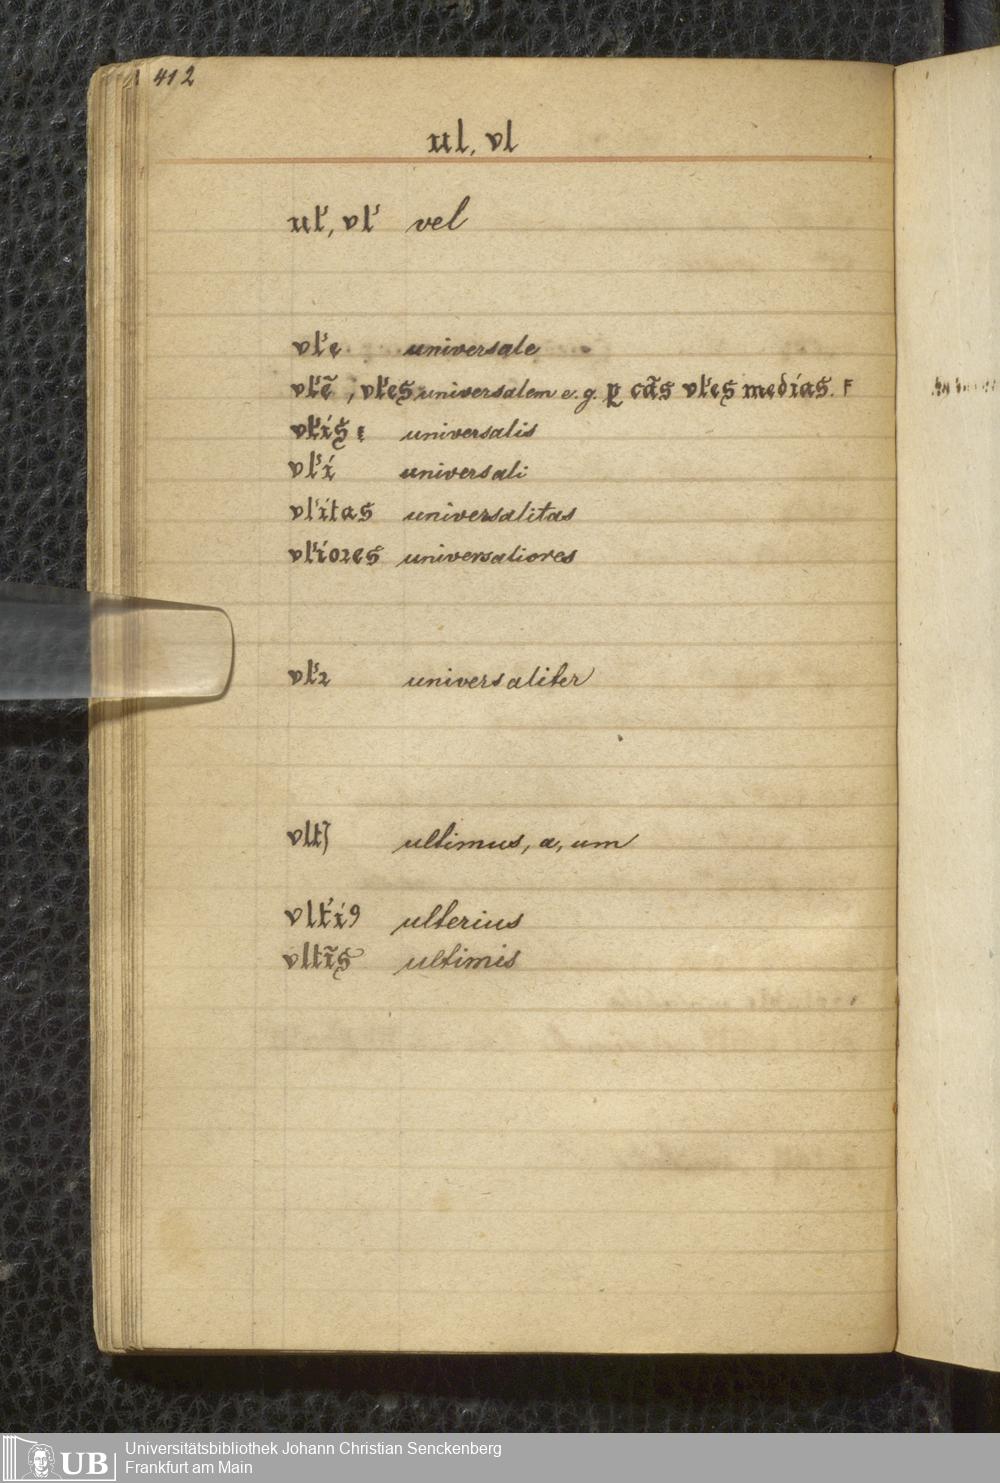 412
ul, vl
ul', vl' vel
vl'e universale
vl'ē, vl'es universalem e. g. ꝑ cās vl'es medias. F
vl'is universalis
vl'i universali
vl'itas universalitas
vl'iores universaliores
vl'ꝛ universaliter
vltꝭ ultimus, a, um
vlt'iꝯ ulterius
vltīs ultimis
Universitätsbibliothek Johann Christian Senckenberg
Frankfurt am Main
UB